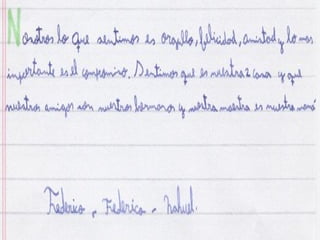 Nosotros lo que sentimos es orgullo, felicidad, amistad y lo mas
importante es el compromiso. Sentimos que es nuestra 2 casa y que
nuestros amigos son nuestros hermanos y nuestra maestra es nuestra mamá
Federico, Federico - Nahuel.